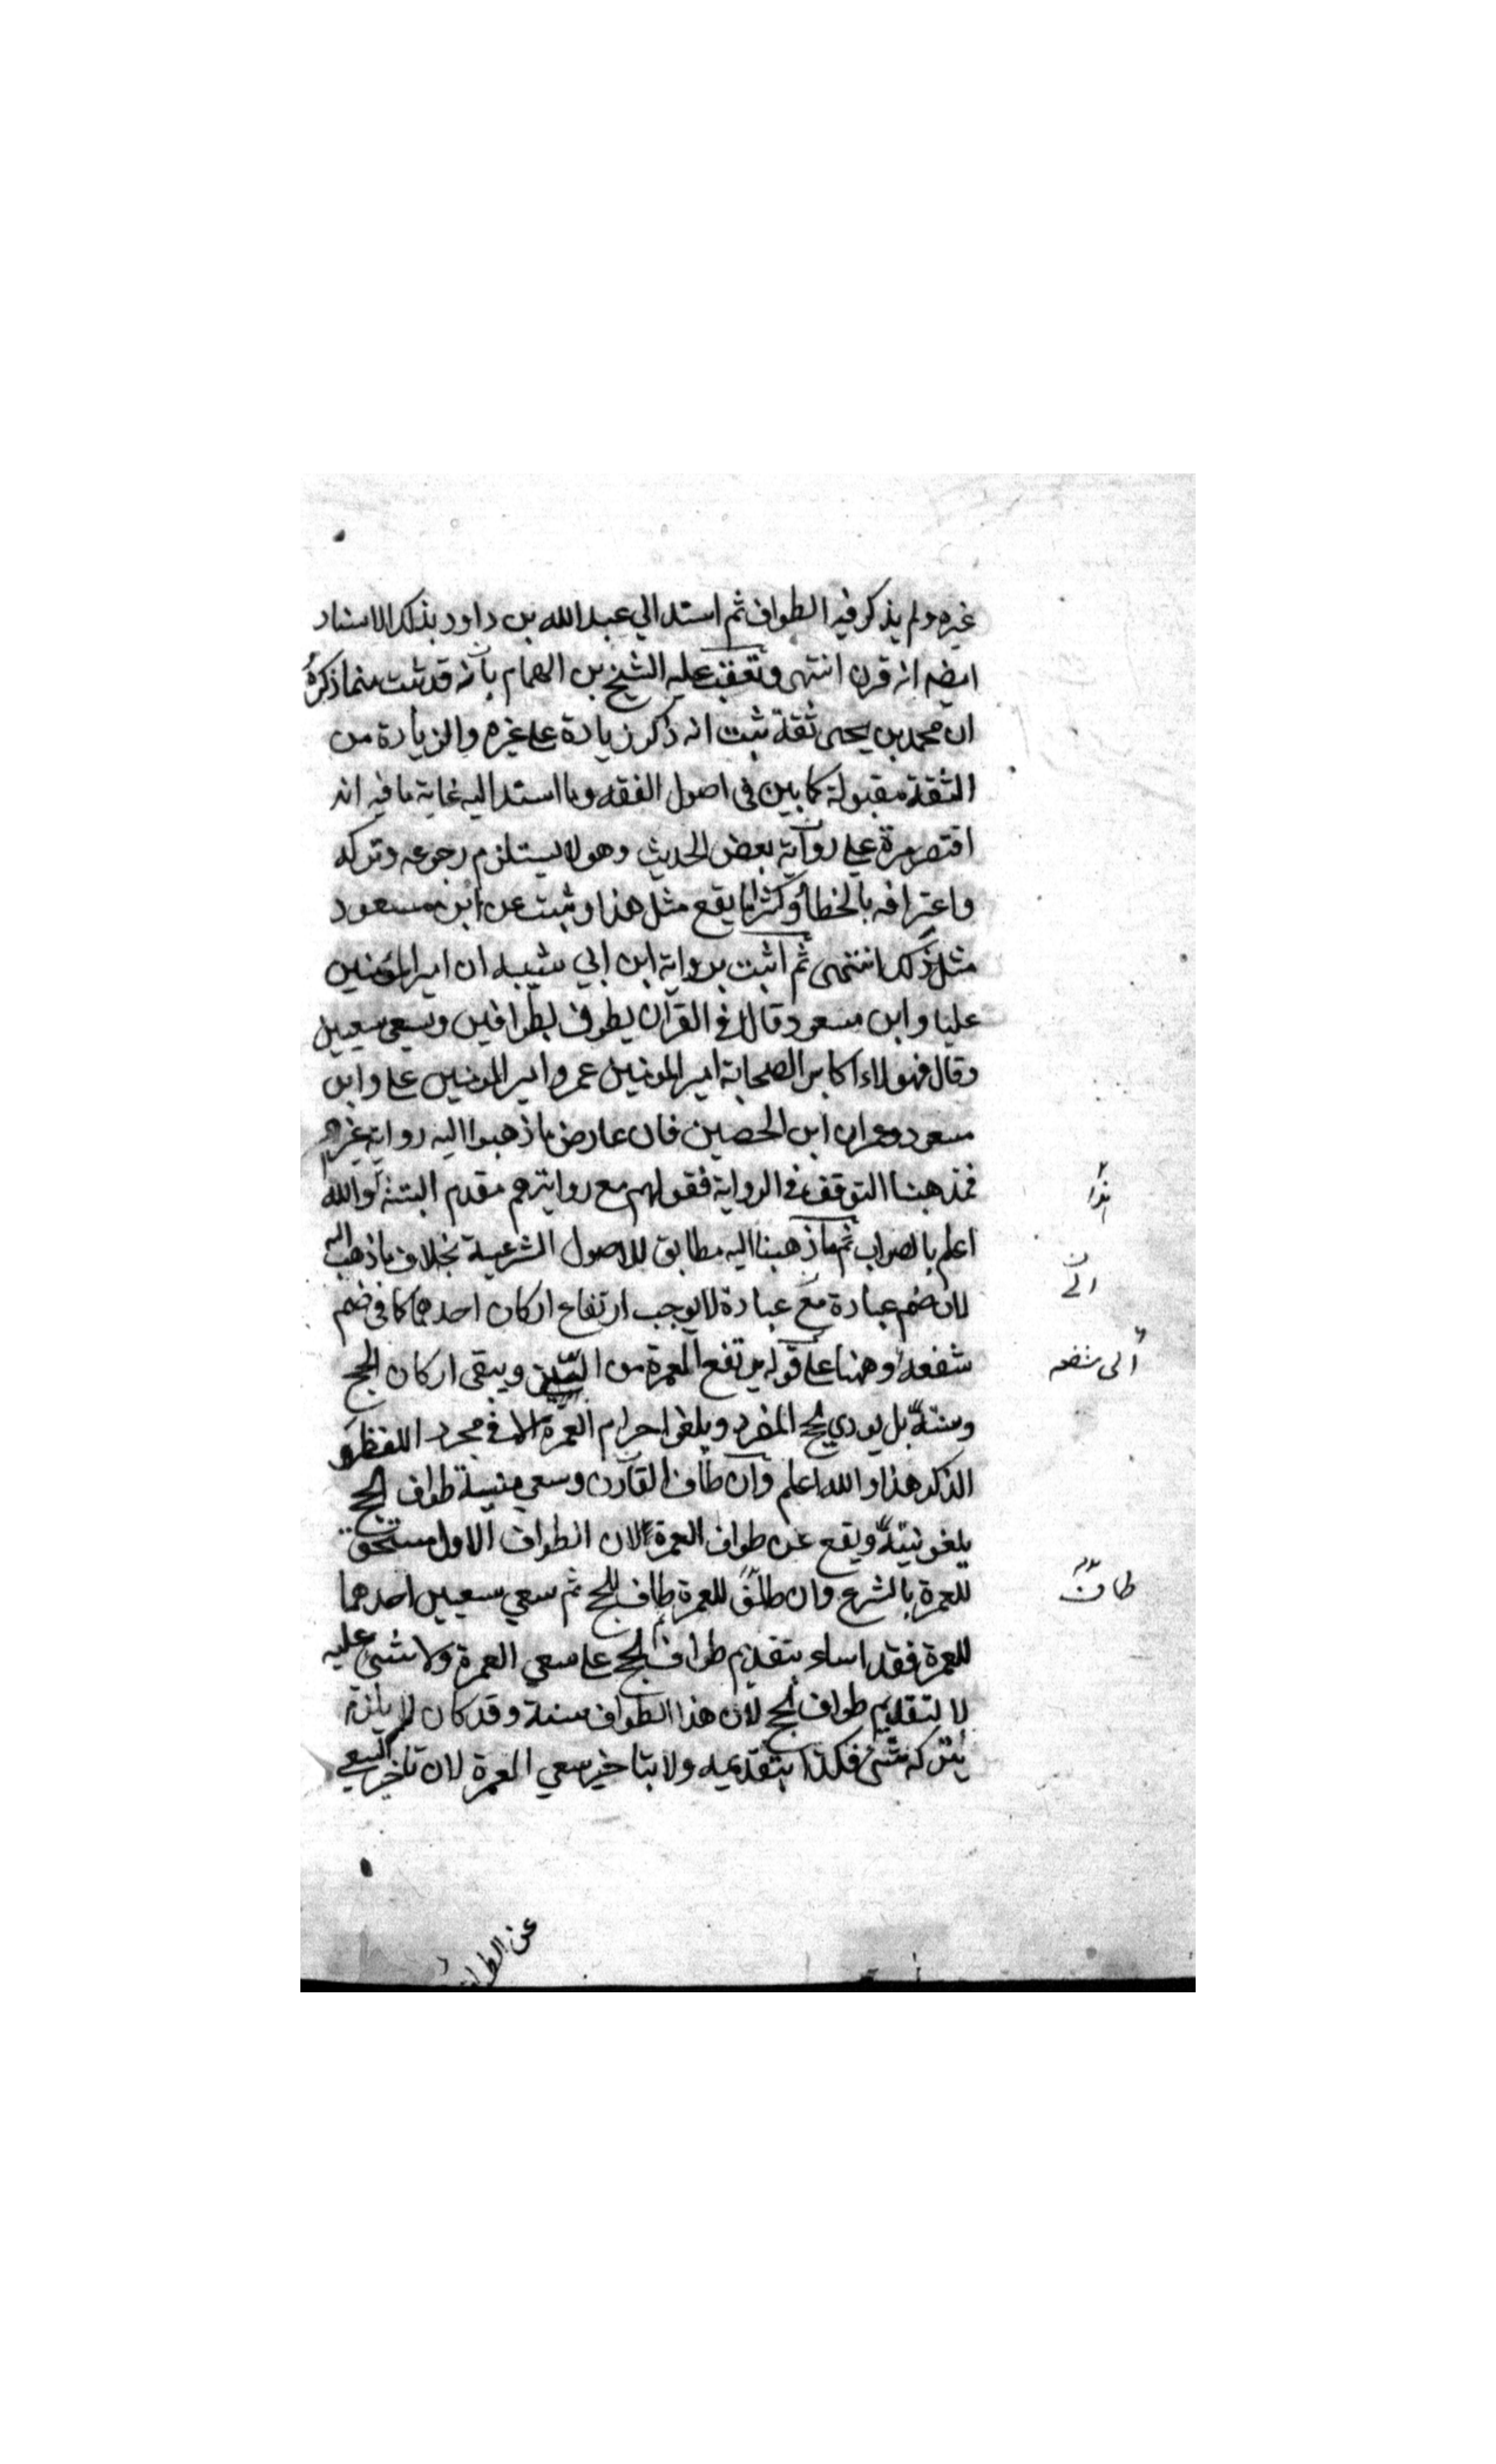 غيره ولم يذكر فيه الطواف ثم اسند الي عبد الله بن داود بذلك الاسناد
ايضه انه قرن انتهى وتعقبه عليه الشيخ بن الهمام بانه قد ثبت منما ذكره
ان محمد بن يحيى ثقة ثبت انه ذكر زيادة على غيره والزيادة من
الثقة مقبولة كما بين فى اصول الفقه وما اسند اليه غاية ما فيه انه
اقتصر مرة علي رواية بعض الحديث وهو لا يستلزم رجوعه وتركه
واعترافه بالخطأ وكثيرا ما يقع مثل هذا وثبت عن ابن مسعود
مثل ذلك انتهى ثم اثبت برواية ابن ابي شيبه ان امير المؤمنين
عليا وابن مسعود قالا في القران يطوف بطوافين ويسعى سعيين
وقال فهولاء اكابر الصحابة امير المومنين عمر وامير المومنين على وابن
مسعود وعمران ابن الحصين فان عارض ما ذهبوا اليه رواية غيرهم
فمذهبنا التوقف في الرواية فقولهم مع روايتهم مقدم البتة والله
اعلم بالصواب ثم ما ذهبنا اليه مطابق للاصول الشرعية بخلاف ما ذهب اليه
لان ضم عبادة مع عبادة لا يوجب ارتفاع اركان احدهما كما فى ضم
شفعه وههنا على قوله يرتفع العمرة من البين ويبقى اركان الحج
وسننه بل يودي لحج المفرد ويلغو احرام العمرة الا في مجرد اللفظ و
الذكر هذا والله اعلم وان طاف القارن وسعي بنية طواف الحج
يلغو نيته ويقع عن طواف العمرة لان الطواف الاول مستحق
للعمرة بالشرع وان طاف للعمرة ثم طاف للحج ثم سعي سعيين احدهما
للعمرة فقد اساء بتقديم طواف الحج على سعي العمرة ولا شئ عليه
لا لتقديم طواف الحج لان هذا الطواف سنة وقد كان لا يلزم
بتركه شئ فكذا بتقديمه ولا بتاخير سعي العمرة لان تاخير السعي
الى
الى شفعه
طاف
عن الطواف